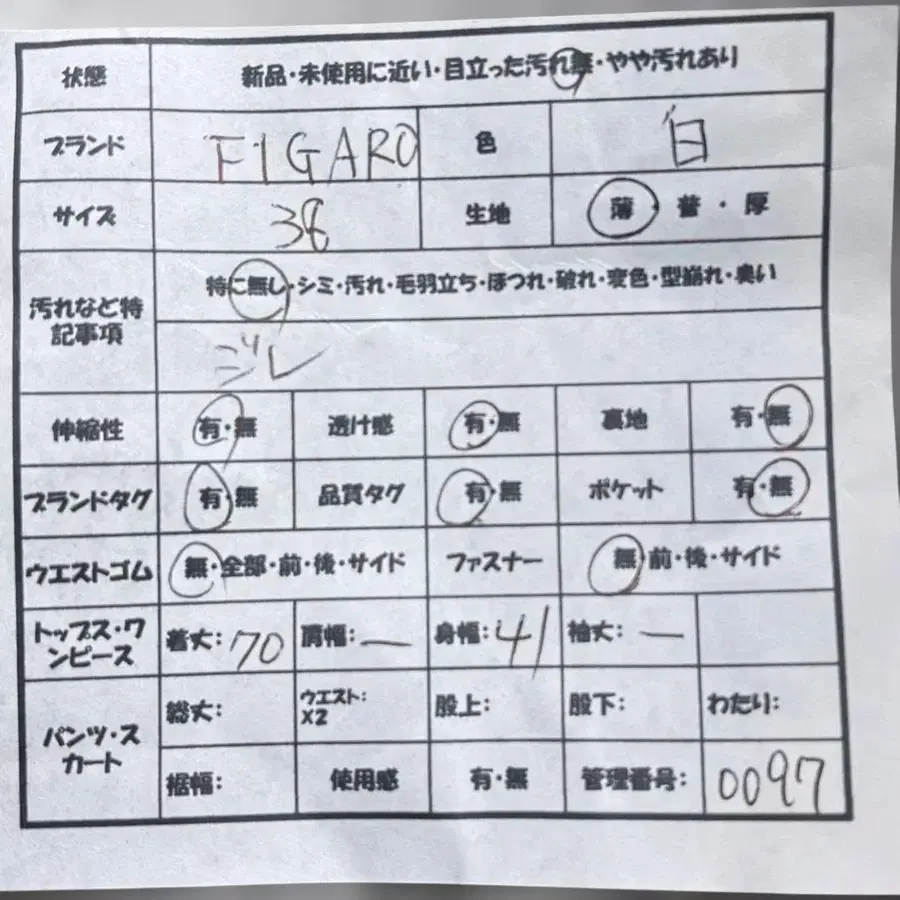 状態 新品・未使用に近い・目立った汚れ無・やや汚れあり
ブランド FIGARO 色 白
サイズ 38 生地 薄・普・厚
汚れなど特記事項 特に無し・シミ・汚れ・毛羽立ち・ほつれ・破れ・変色・型崩れ・臭い
ジレ
伸縮性 有・無 透け感 有・無 裏地 有・無
ブランドタグ 有・無 品質タグ 有・無 ポケット 有・無
ウエストゴム 無・全部・前・後・サイド ファスナー 無・前・後・サイド
トップス・ワンピース 着丈:70 肩幅:— 身幅:41 袖丈:—
パンツ・スカート 総丈: ウエスト:X2 股上: 股下: わたり:
裾幅: 使用感 有・無 管理番号: 0097